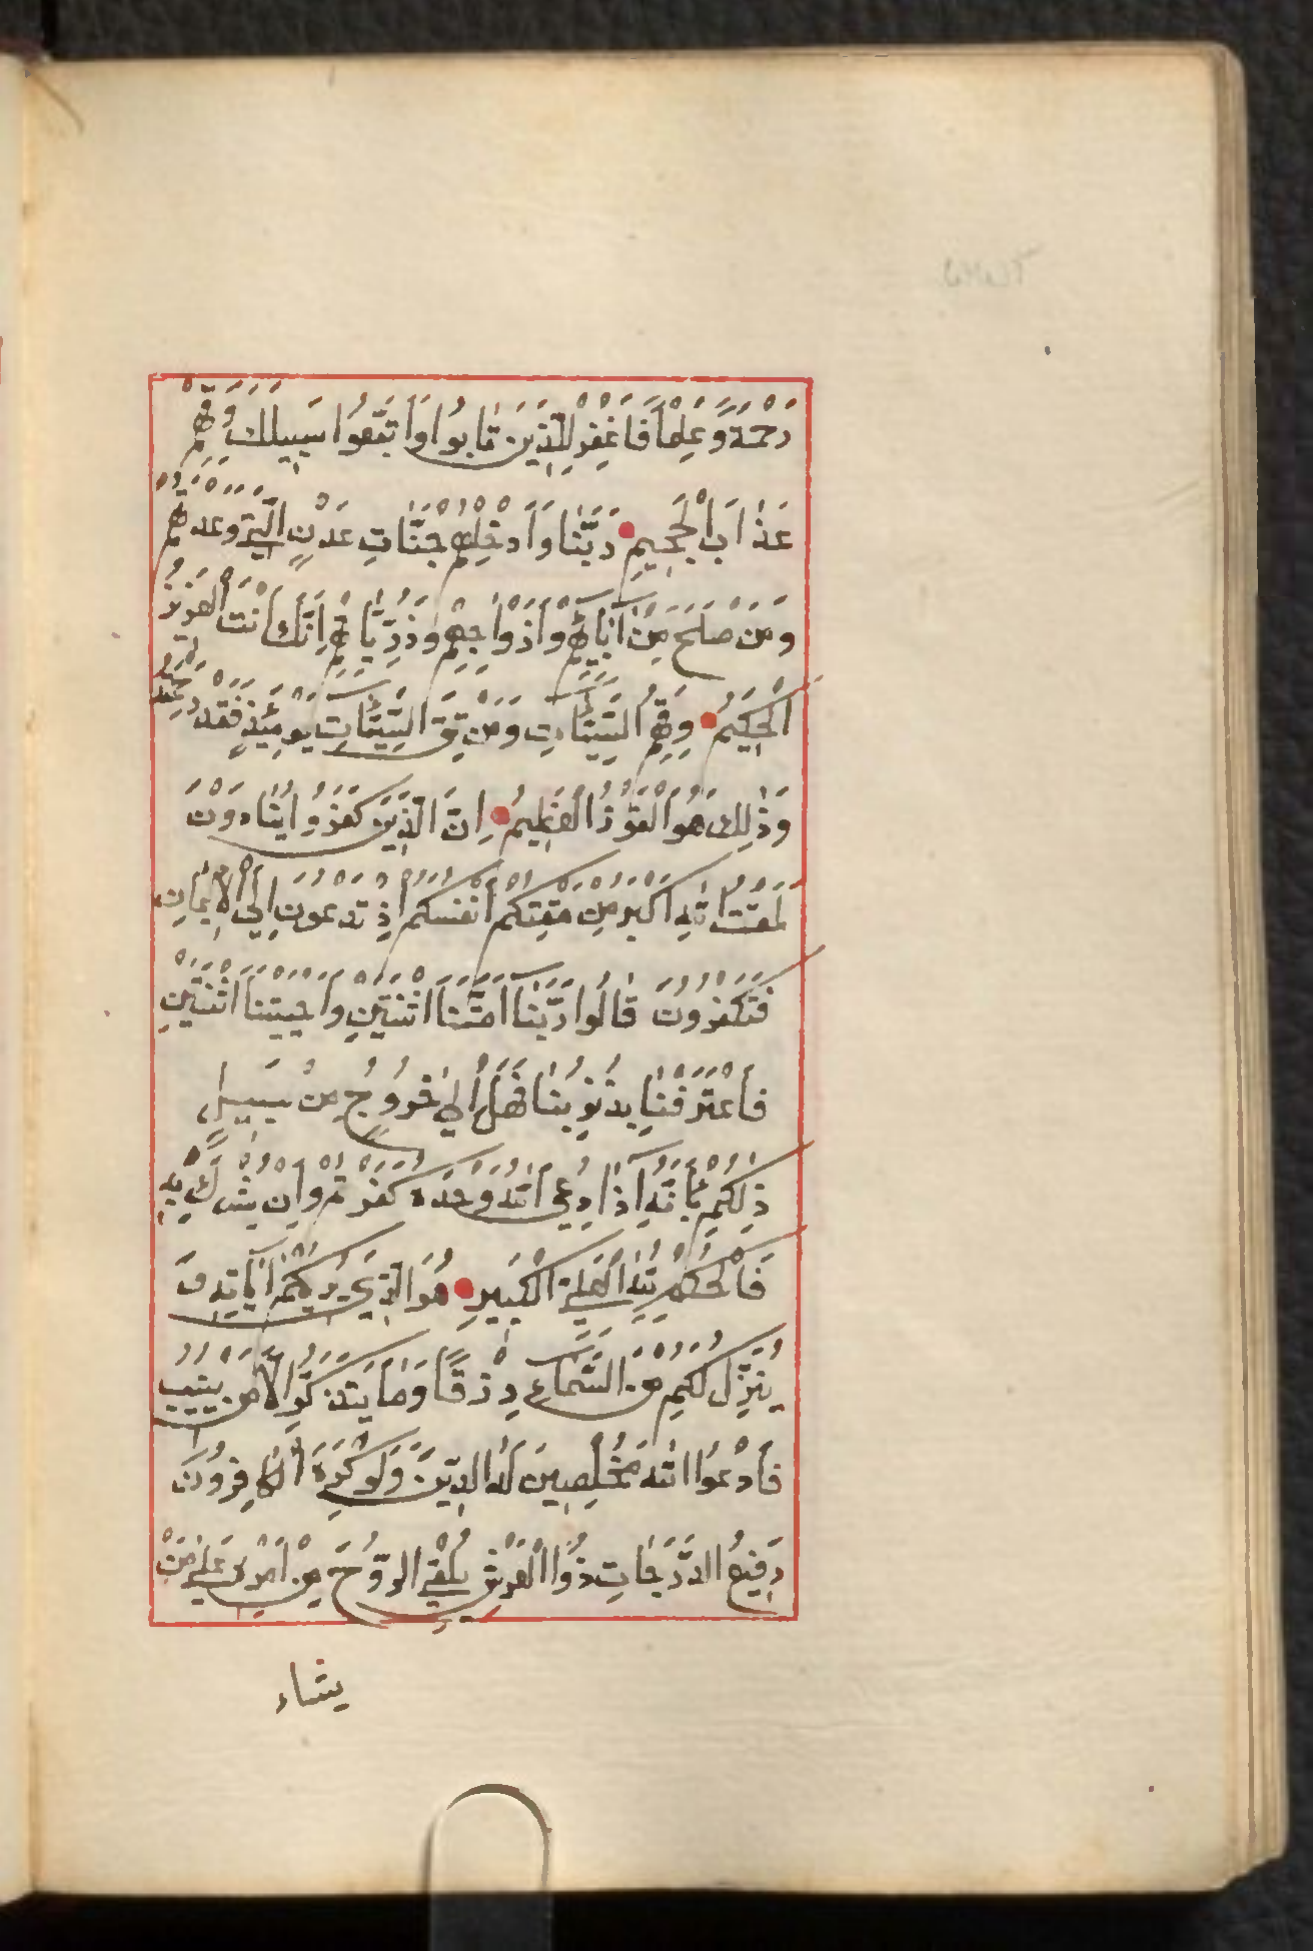 رَحْمَةً وَّعِلْمًا فَاغْفِرْ لِلَّذِينَ تَابُوا وَاتَّبَعُوا سَبِيلَكَ وَقِهِمْ
عَذَابَ الْجَحِيمِ رَبَّنَا وَاَدْخِلْهُمْ جَنَّاتِ عَدْنٍ الَّتِي وَعَدْتَهُمْ
وَمَنْ صَلَحَ مِنْ آبَائِهِمْ وَاَزْوَاجِهِمْ وَذُرِّيَّاتِهِمْ اِنَّكَ اَنْتَ الْعَزِيزُ
الْحَكِيمُ وَقِهِمُ السَّيِّئَاتِ وَمَنْ تَقِ السَّيِّئَاتِ يَوْمَئِذٍ فَقَدْ رَحِمْتَهُ
وَذٰلِكَ هُوَ الْفَوْزُ الْعَظِيمُ اِنَّ الَّذِينَ كَفَرُوا يُنَادَوْنَ
لَمَقْتُ اللّٰهِ اَكْبَرُ مِنْ مَقْتِكُمْ اَنْفُسَكُمْ اِذْ تُدْعَوْنَ اِلَى الْاِيمَانِ
فَتَكْفُرُونَ قَالُوا رَبَّنَا اَمَتَّنَا اثْنَتَيْنِ وَاَحْيَيْتَنَا اثْنَتَيْنِ
فَاعْتَرَفْنَا بِذُنُوبِنَا فَهَلْ اِلٰى خُرُوجٍ مِنْ سَبِيلٍ
ذٰلِكُمْ بِاَنَّهُ اِذَا دُعِيَ اللّٰهُ وَحْدَهُ كَفَرْتُمْ وَاِنْ يُشْرَكْ بِهِ
فَالْحُكْمُ لِلّٰهِ الْعَلِيِّ الْكَبِيرِ هُوَ الَّذِي يُرِيكُمْ آيَاتِهِ وَ
يُنَزِّلُ لَكُمْ مِنَ السَّمَاءِ رِزْقًا وَمَا يَتَذَكَّرُ اِلَّا مَنْ يُنِيبُ
فَادْعُوا اللّٰهَ مُخْلِصِينَ لَهُ الدِّينَ وَلَوْ كَرِهَ الْكَافِرُونَ
رَفِيعُ الدَّرَجَاتِ ذُوا الْعَرْشِ يُلْقِي الرُّوحَ مِنْ اَمْرِهِ عَلٰى مَنْ
يشاء